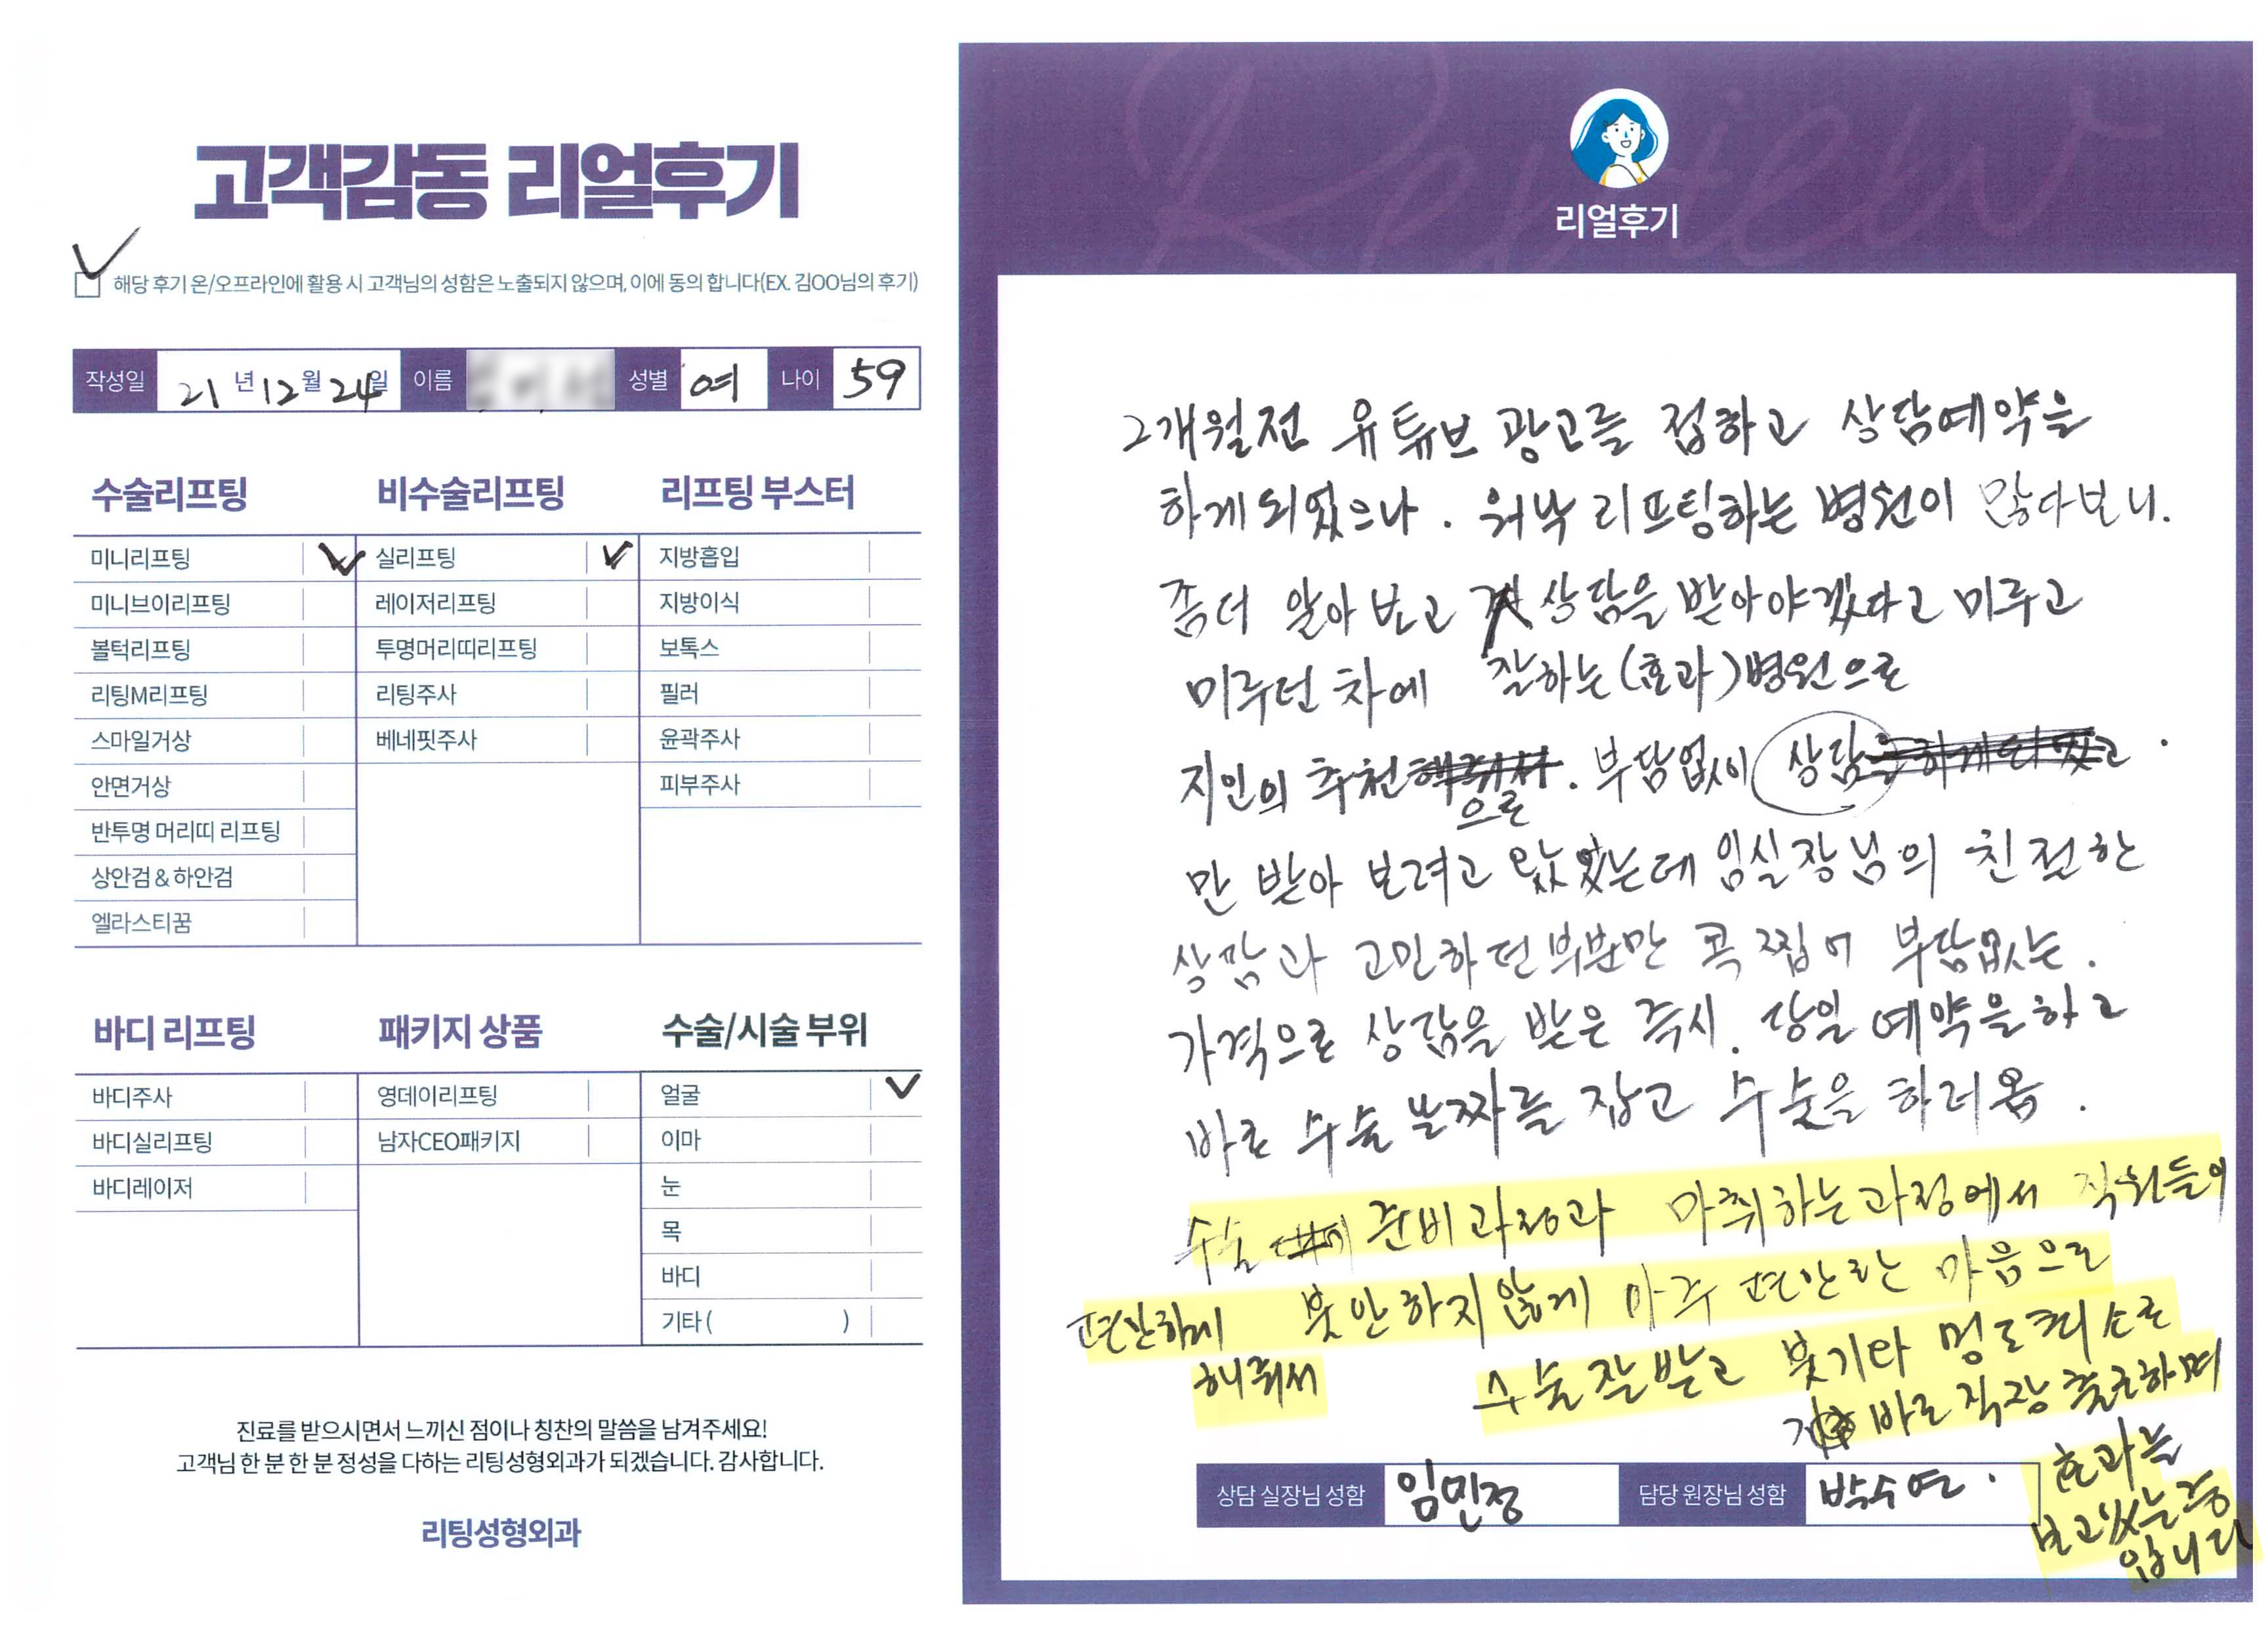 고객감동 리얼후기
해당 후기 온/오프라인에 활용 시 고객님의 성함은 노출되지 않으며, 이에 동의 합니다(EX. 김OO님의 후기)
작성일 21년 12월 24일 이름 성별 여 나이 59
수술리프팅
미니리프팅
미니브이리프팅
볼턱리프팅
리팅M리프팅
스마일거상
안면거상
반투명 머리띠 리프팅
상안검 & 하안검
엘라스티꿈
비수술리프팅
실리프팅
레이저리프팅
투명머리띠리프팅
리팅주사
베네핏주사
리프팅 부스터
지방흡입
지방이식
보톡스
필러
윤곽주사
피부주사
바디 리프팅
바디주사
바디실리프팅
바디레이저
패키지 상품
영데이리프팅
남자CEO패키지
수술/시술 부위
얼굴
이마
눈
목
바디
기타 ( )
진료를 받으시면서 느끼신 점이나 칭찬의 말씀을 남겨주세요!
고객님 한 분 한 분 정성을 다하는 리팅성형외과가 되겠습니다. 감사합니다.
리팅성형외과
Review
리얼후기
2개월전 유튜브 광고를 접하고 상담예약을
하게 되었으나. 워낙 리프팅하는 병원이 많다보니.
좀더 알아 보고 상담을 받아야겠다고 미루고
미루던 차에 잘하는(효과)병원으로
지인의 추천으로. 부담없이 상담
만 받아 보려고 왔었는데 임실장님의 친절한
상담과 고민하던부분만 콕 찝어 부담없는.
가격으로 상담을 받은 즉시. 당일 예약을하고
바로 수술 날짜를 잡고 수술을 하러옴.
수술 준비과정과 마취하는과정에서 직원들이
편안하게 불안하지않게 아주 편안한 마음으로
해줘서 수술잘받고 붓기와 멍도 최소로
바로 직장 출근하며
효과는
보고있는중
입니다
상담 실장님 성함 임민정 담당 원장님 성함 박수연.